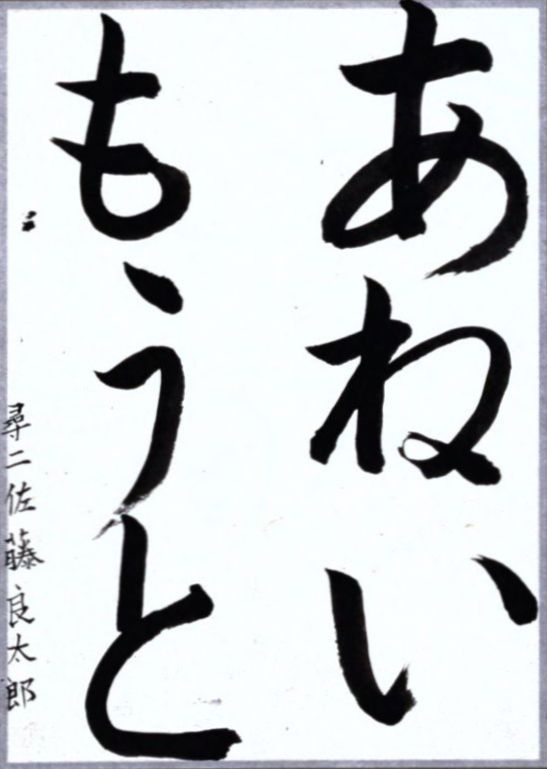 あねい
もうと
尋二佐藤良太郎